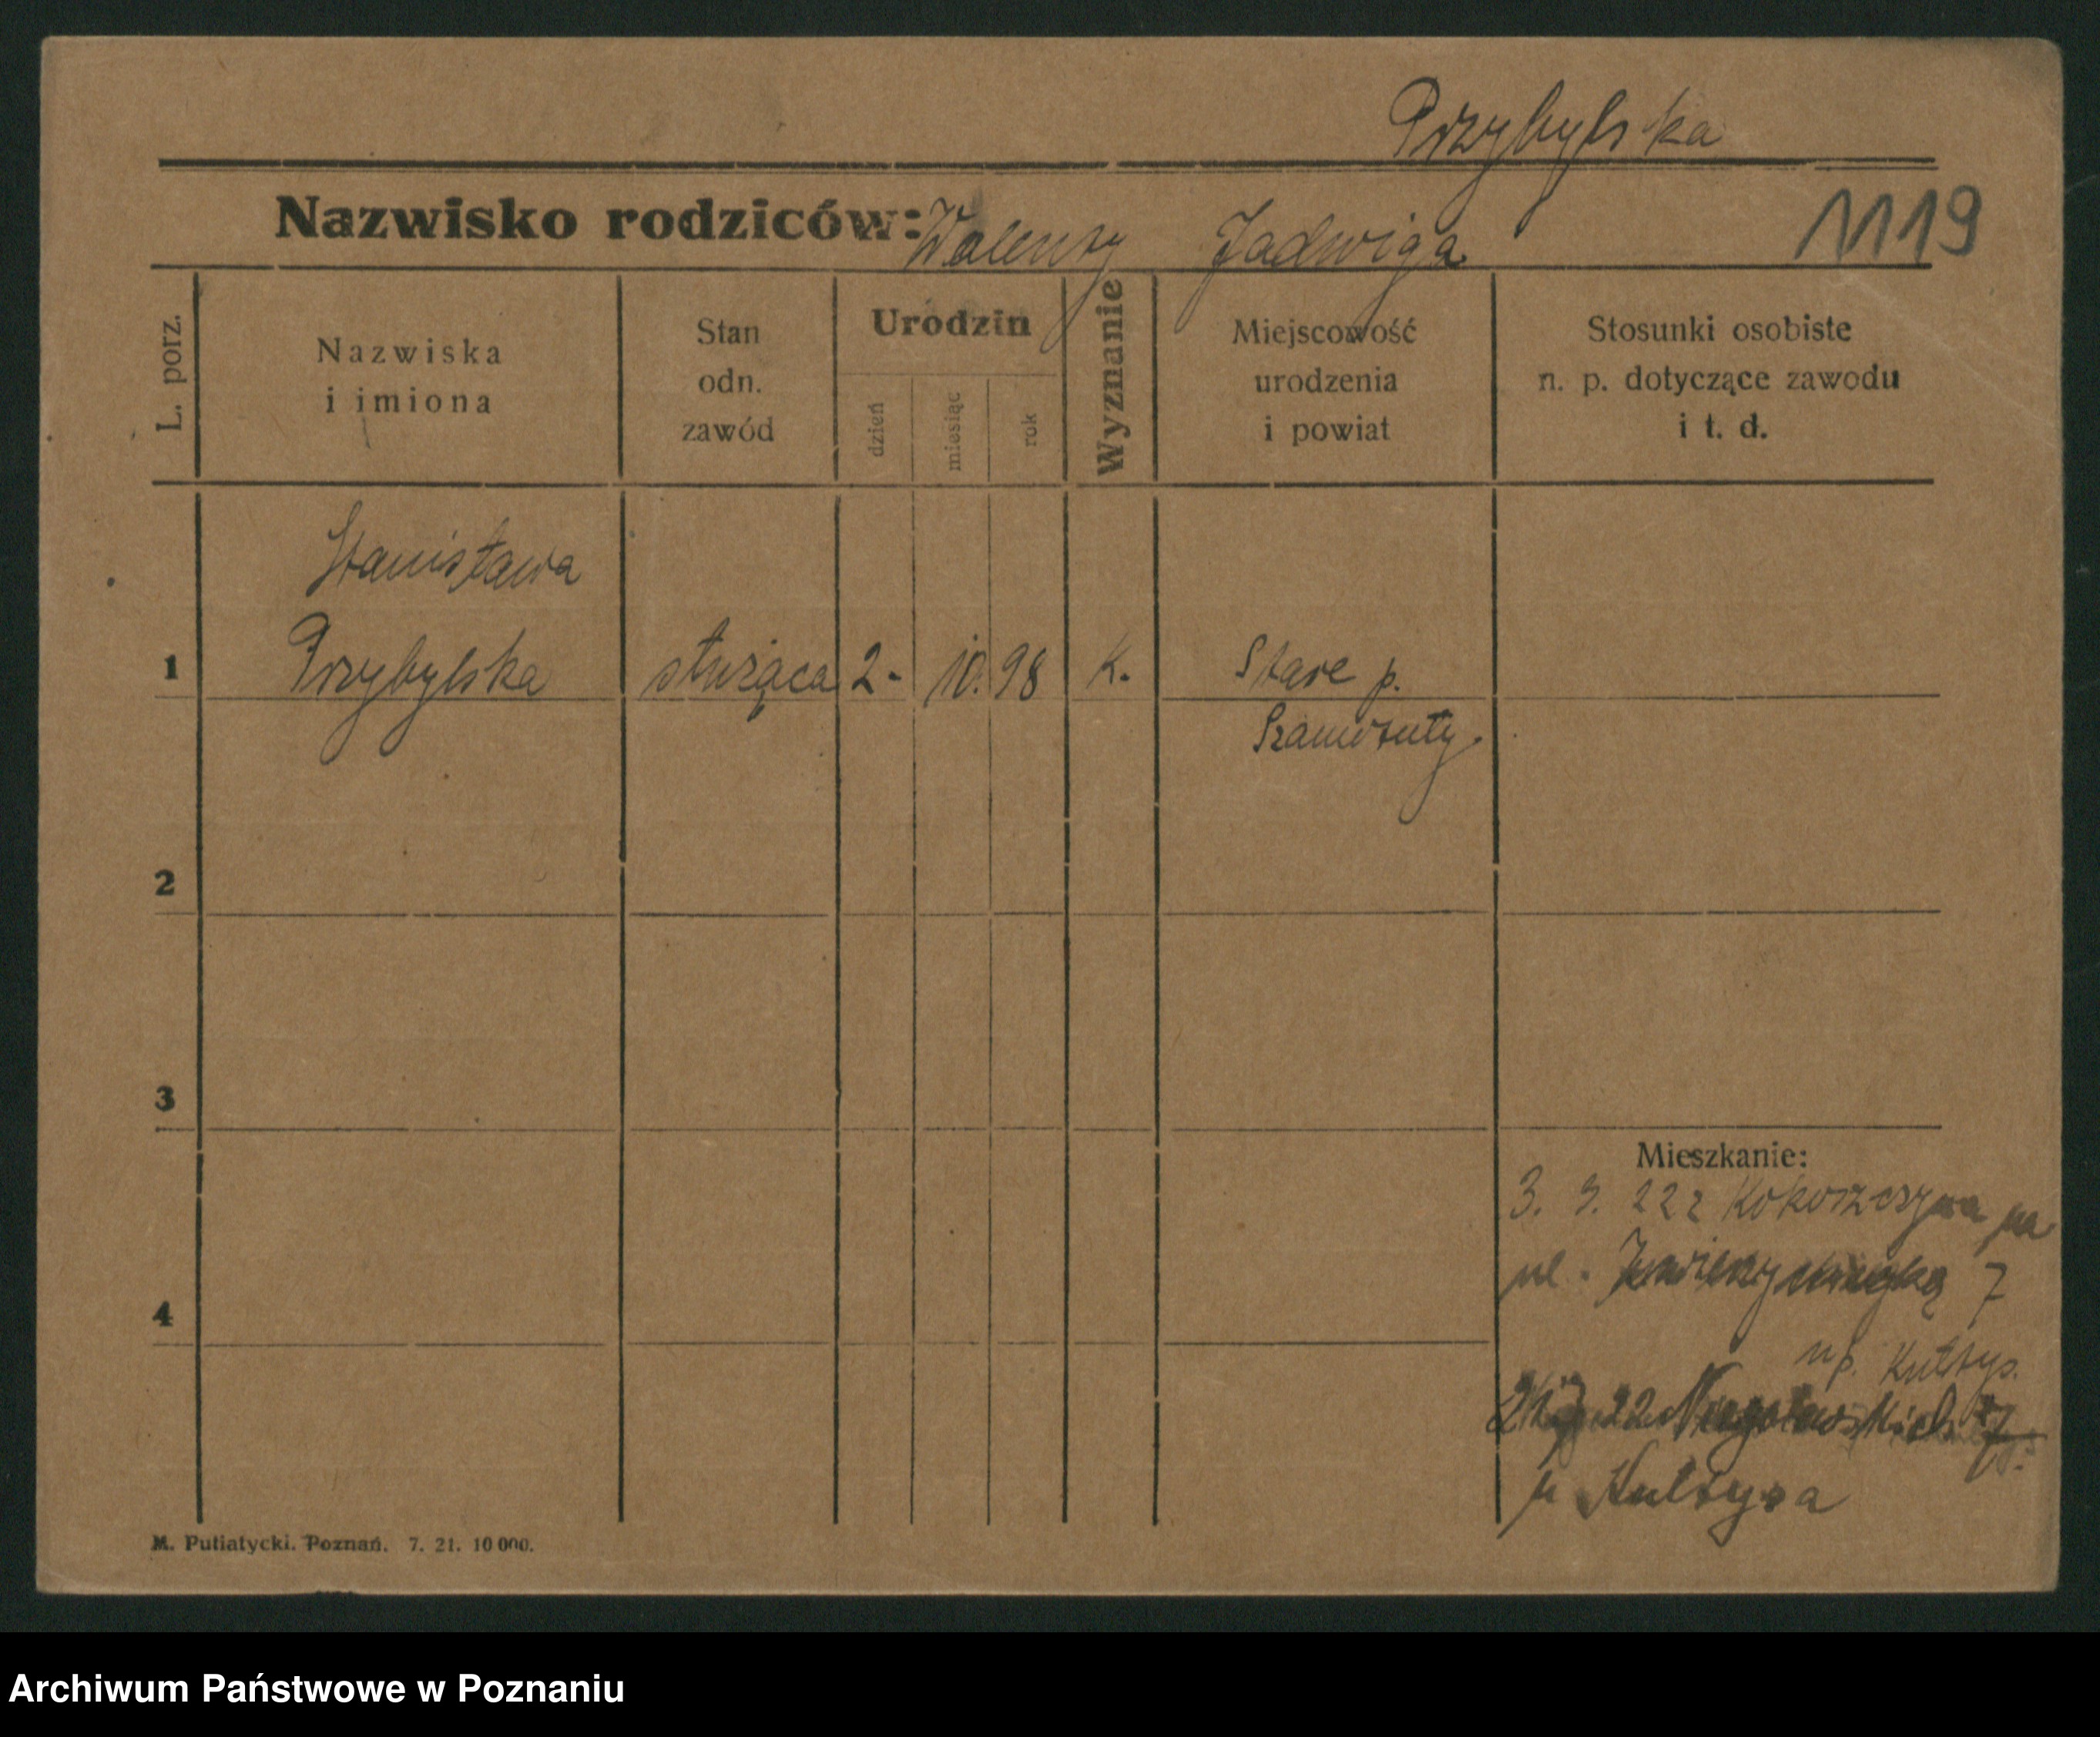 Przybylska
Nazwisko rodziców: Walenty Jadwiga
1119
L. porz.
Nazwiska
i imiona
Stan
odn.
zawód
Urodzin
dzień
miesiąc
rok
Wyznanie
Miejscowość
urodzenia
i powiat
Stosunki osobiste
n. p. dotyczące zawodu
i t. d.
Stanisława
1 Przybylska służąca 2. 10. 98 K. Stare p.
Szamotuły.
2
3
4
Mieszkanie:
3. 9. 222 Kokoszczyna na
ul. 7
Niegolewskich 7
u
M. Putiatycki. Poznań. 7. 21. 10 000.
Archiwum Państwowe w Poznaniu